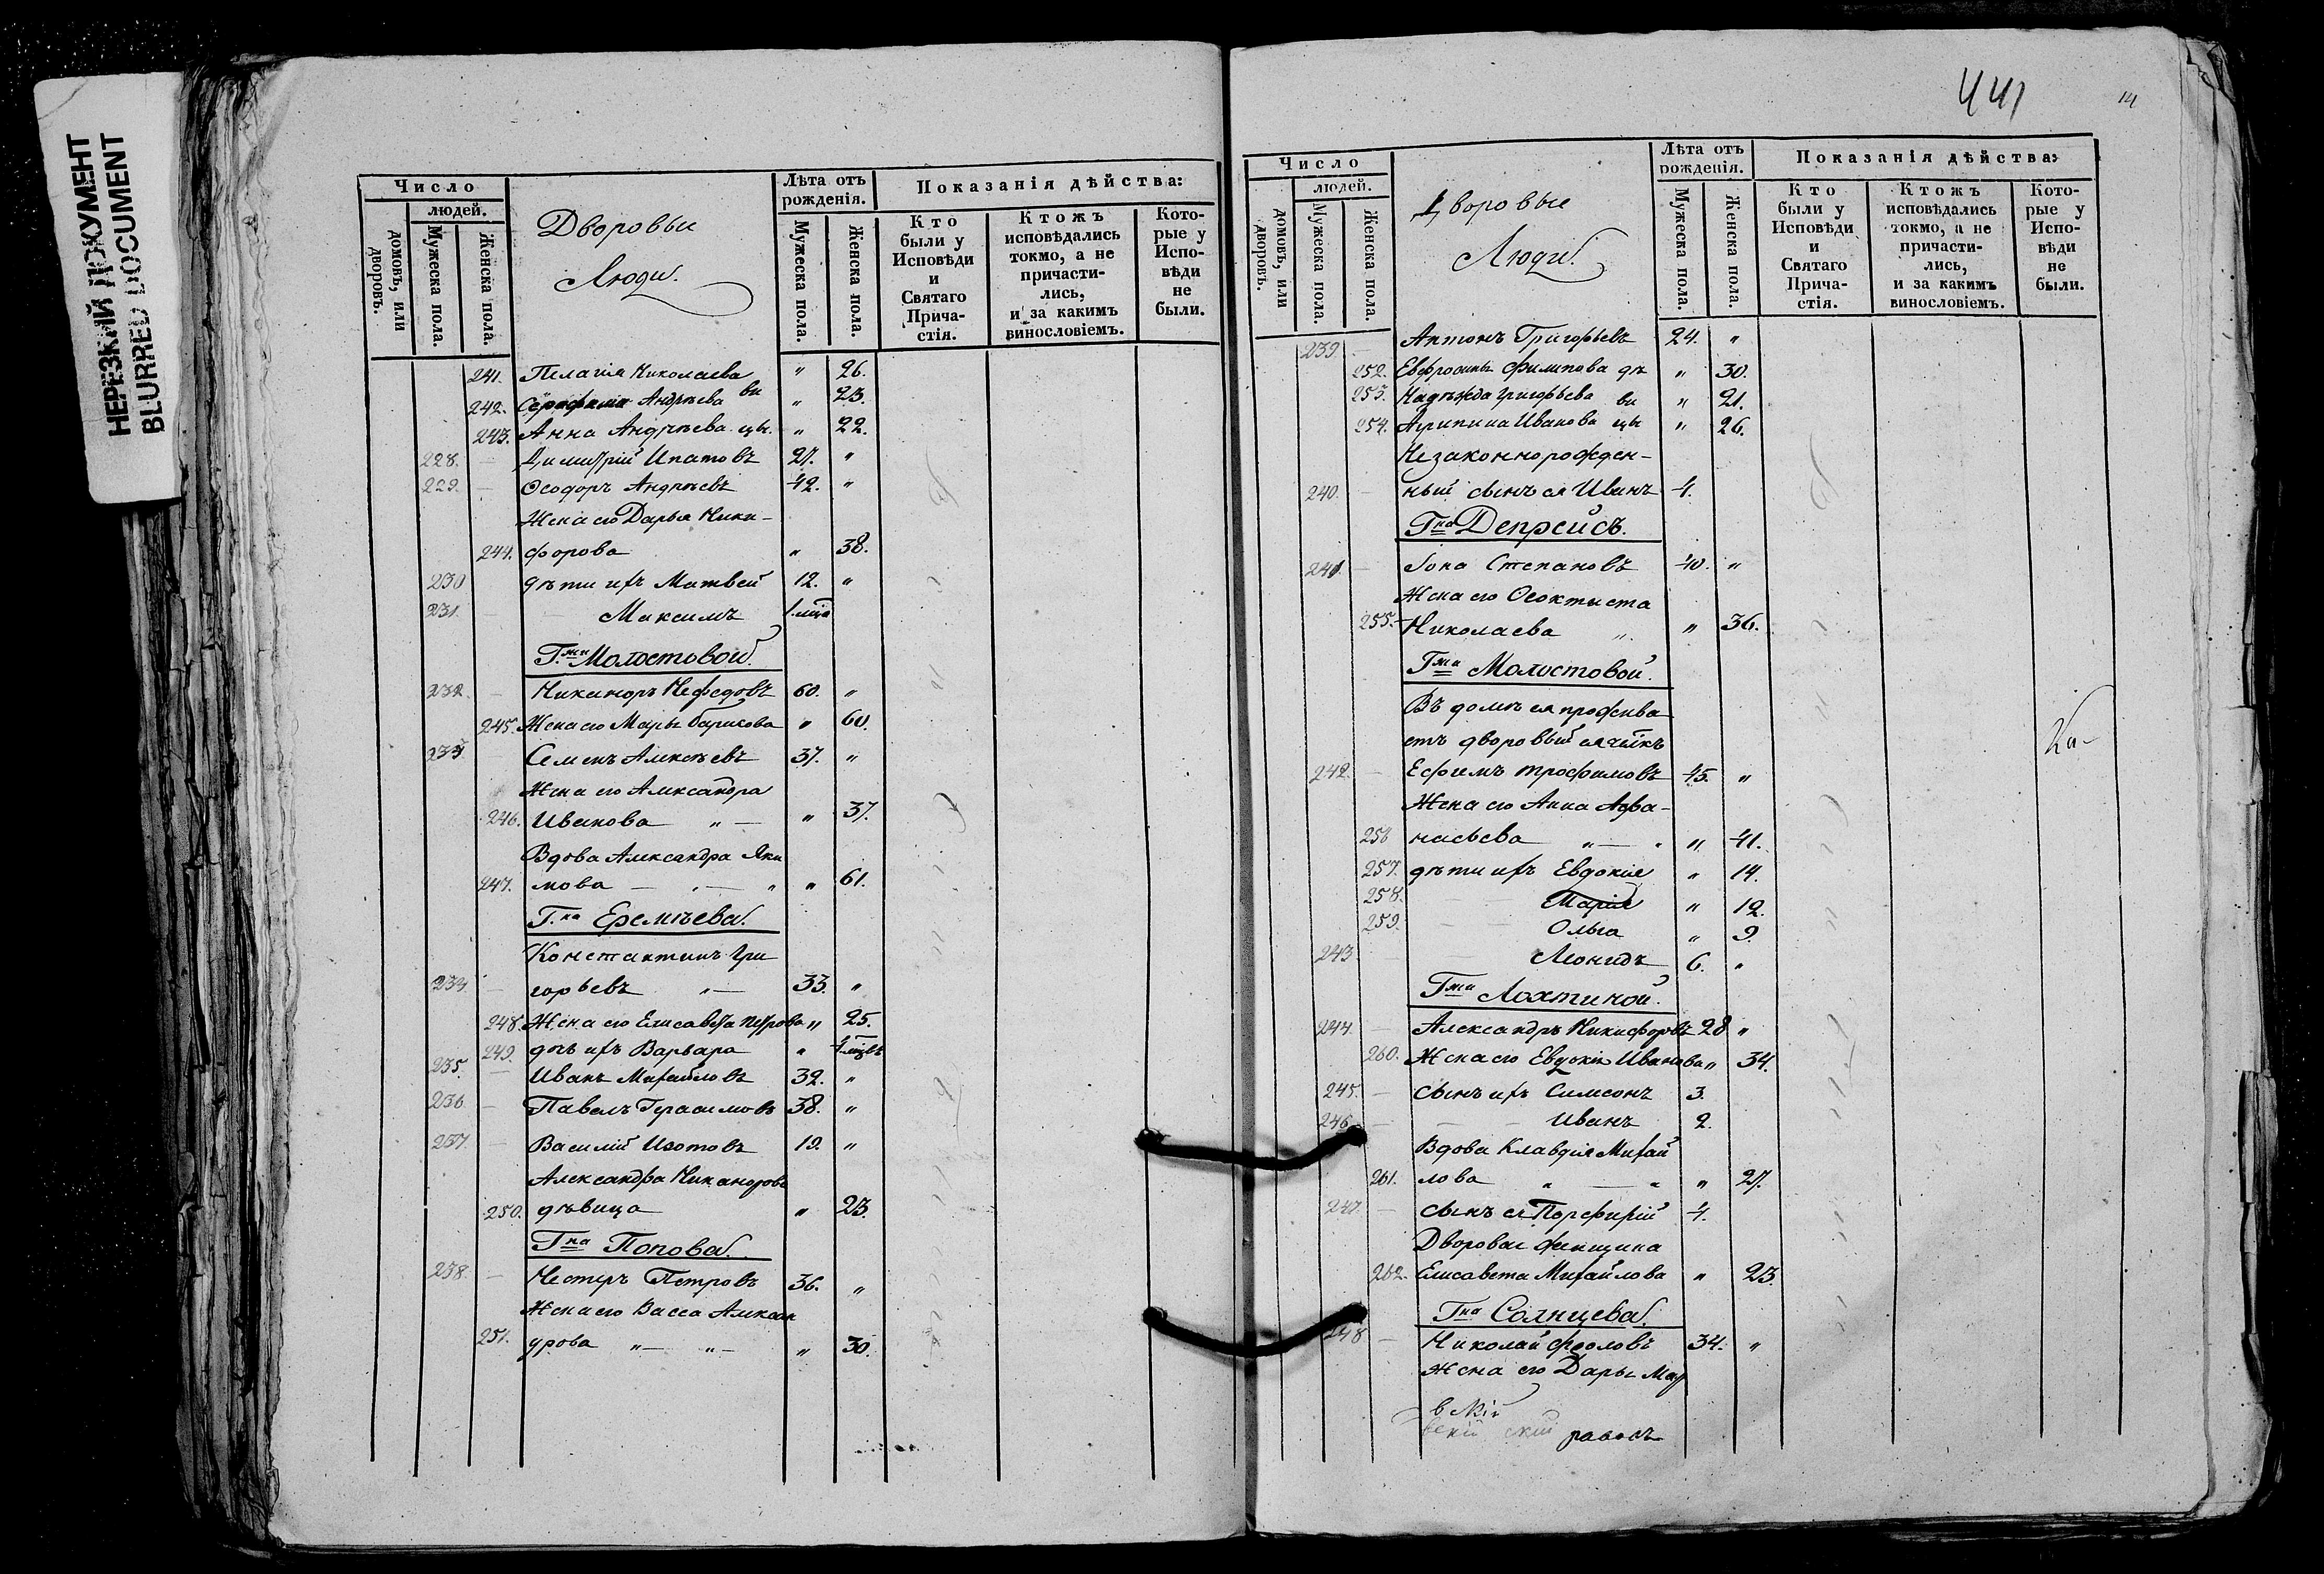 НЕРЕЗКИЙ ДОКУМЕНТ
BLURRED DOCUMENT
Число
людей.
домовъ, или дворовъ.
Мужеска пола.
Женска пола.
Дворовыи
Люди.
Лѣта отъ рожденія.
Мужеска пола.
Женска пола.
Показанія дѣйства:
Кто были у Исповѣди и Святаго Прича-стія.
Ктожъ исповѣдались токмо, а не причасти-лись, и за какимъ винословіемъ.
Кото-рые у Испо-вѣди не были.
241. Пелагія Николаева " 26.
242. Серафима Андрѣева " 23.
243. Анна Андрѣева " 22.
228. — Димитрій Ипатовъ 27. "
229. — Ѳеодоръ Андрѣевъ 42. "
Жена его Дарья Ники-
244. форова " 38.
230 дѣти ихъ Матвей 12. "
231. Максимъ
Г.жи Молостовой.
232. — Никаноръ Нефедовъ 60. "
245. Жена его Марья Борисова " 60.
233 Семенъ Алексѣевъ 37. "
Жена его Александра
246. Иванова " — " 37.
Вдова Александра Яки
247. мова — " — " " 61.
Г.на Еремѣева.
Константинъ Гри
234. — горьевъ " — 33. "
248. Жена его Елисавета Петрова " 25.
249. дчь ихъ Варвара "
235. — Иванъ Михайловъ 32. "
236 — Павелъ Герасимовъ 38. "
237. — Василій Изотовъ 19. "
Александра Никанорова
250. дѣвица " 23.
Гна Попова.
238. — Нестеръ Петровъ 36. "
Жена его Васса Алексан
251. дрова " — " — " 30.
441
14
Число
людей.
домовъ, или дворовъ.
Мужеска пола.
Женска пола.
Дворовые
Люди.
Лѣта отъ рожденія.
Мужеска пола.
Женска пола.
Показанія дѣйства:
Кто были у Исповѣди и Святаго Прича-стія.
Ктожъ исповѣдались токмо, а не причасти-лись, и за какимъ винословіемъ.
Кото-рые у Испо-вѣди не были.
239. — Антонъ Григорьевъ 24. "
252. Евфросинья Филипова дѣ " 30.
253. Надѣжда Григорьева " 21.
254. Агрипина Иванова " 26.
Незаконнорожден-
240. — ный сынъ ея Иванъ 4.
Гна Депрейсъ.
241. — Іона Степановъ 40. "
Жена его Ѳеоктиста
255. — Николаева " " 36.
Гжи Молостовой.
Въ домѣ ея прожива
етъ дворовый ея
242. — Ефимъ Трофимовъ 45. "
Жена его Анна Афа-
256 насьева " — " " 41.
257. дѣти ихъ Евдокія " 14.
258. — — Марія " 12.
259. — — Ольга " 9.
243 — — Леонидъ 6. "
Гжи Лохтиной.
244. — Александръ Никифоровъ 28 "
260. Жена его Евдокія Иванова " 34.
245. — сынъ ихъ Симеонъ 3.
246. — — Иванъ 2.
Вдова Клавдія Михай
261. лова " — " " 27.
247. — сынъ ея Порфирій 4.
Дворовая женщина
262. Елисавета Михайлова " 23.
Гна Солнцева.
248 — Николай Фроловъ 34. "
Жена его Дарья